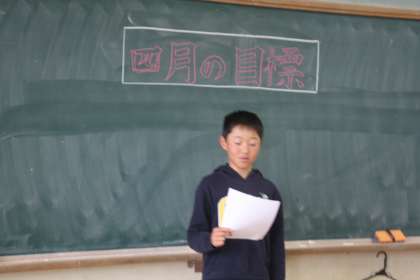 四月の目標